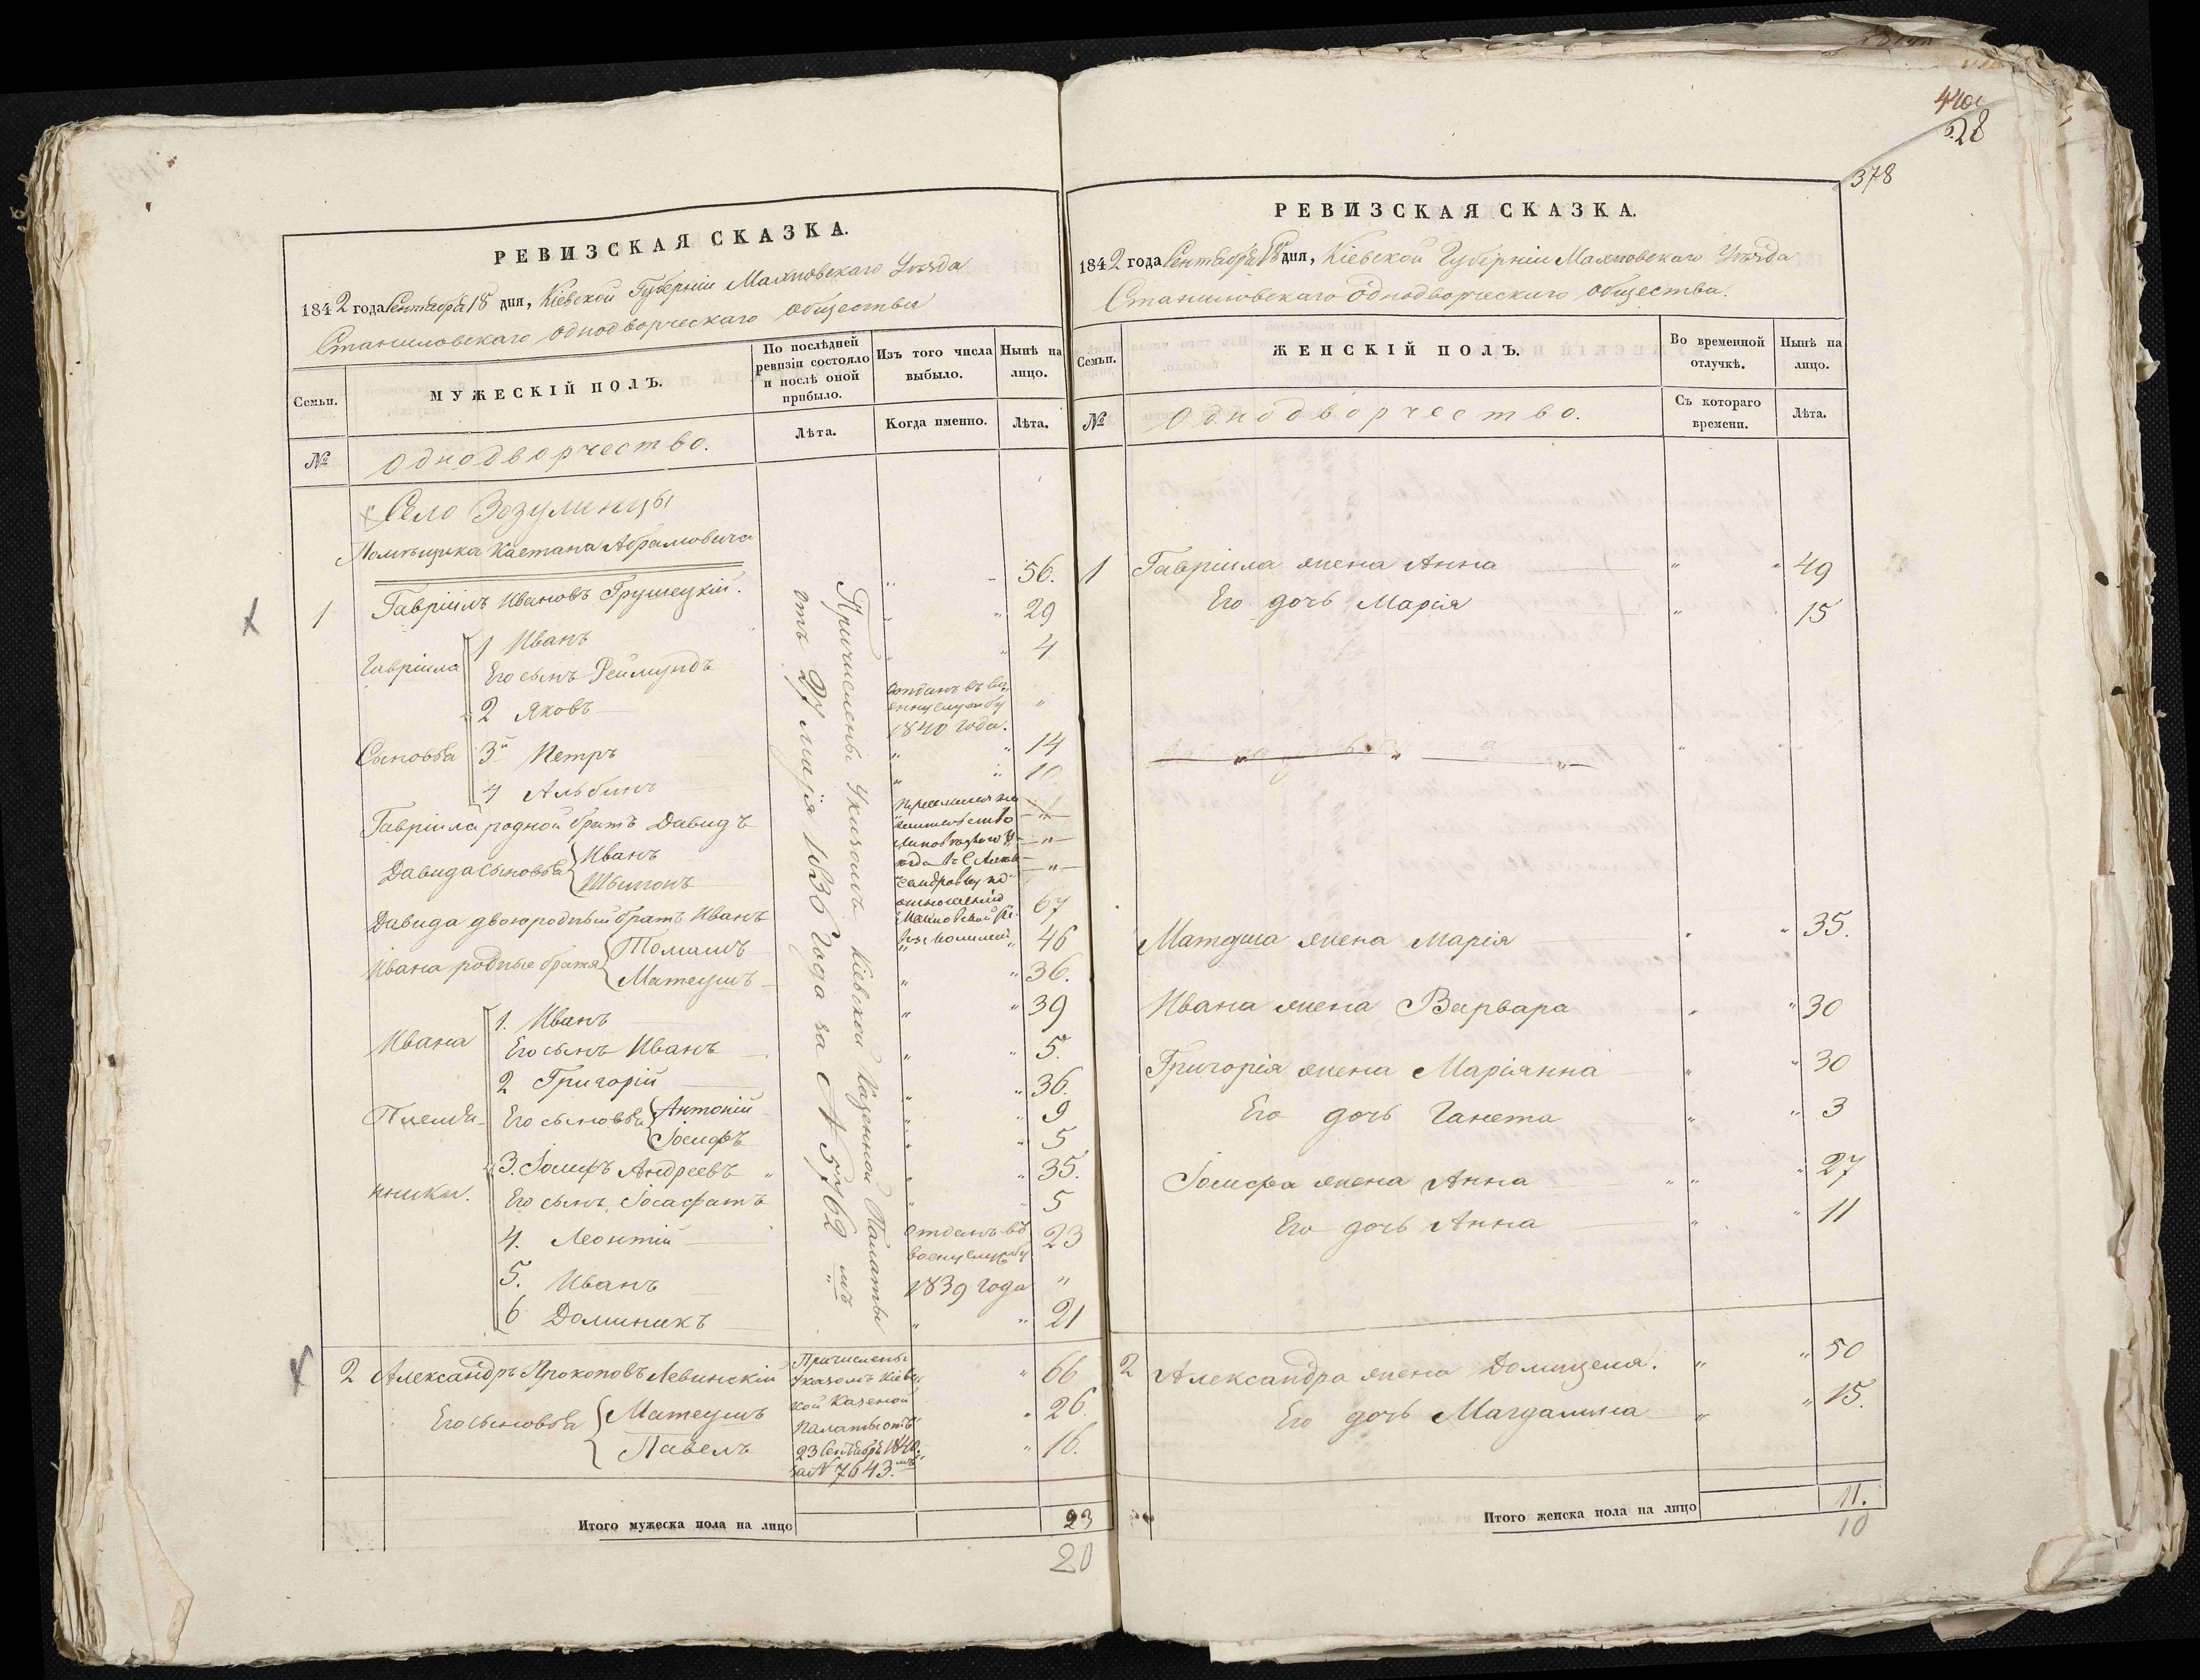 РЕВИЗСКАЯ СКАЗКА.
1842 года Сентября 18 дня, Кіевской Губерніи Махновскаго Уѣзда
Станиловскаго однодворческаго общества
Семьи.
МУЖЕСКІЙ ПОЛЪ.
По послѣдней ревизіи состояло и послѣ оной прибыло.
Изъ того числа выбыло.
Нынѣ на лицо.
№
однодворчество.
Лѣта.
Когда именно.
Лѣта.
Село Зозулинцы
Помѣщика Каетана Абрамовича
1 Гавріилъ Ивановъ Грушецкій. " " 56.
Гавріила
1 Иванъ " " 29
Его сынъ Реймундъ " " 4
2 Яковъ
отданъ въ во-
енну службу
1840 года. "
Сыновья
3й Петръ " " 14
4 Альбинъ " " 10
Гавріила родной братъ Давидъ "
Давида сыновья Иванъ "
Шимонъ "
Давида двоюродный братъ Иванъ 67
Ивана родные братя Томашъ " " 46
Матеушъ " " 36.
Ивана
Племян-
ники.
1. Иванъ " " 39
Его сынъ Иванъ " " 5.
2 Григорій " " 36.
Его сыновья Антоній " " 9
Іосифъ " " 5
3. Іосифъ Андреевъ " " 35.
Его сынъ Іосафатъ " " 5
4. Леонтій 23
отданъ въ
воену службу
5. Иванъ 1839 года "
6 Доминикъ " " 21
Причислены Указомъ Кіевской Казенной Палаты
отъ 27 мая 1836 года за № 5762 мъ
2 Александръ Прокоповъ Левинскій " 66
Его сыновья Матеушъ " 26.
Павелъ " 16.
Причислены
Указомъ Кіевс
кой Казеной
Палаты отъ
23 Сентября 1840.
за № 7643. мъ
Итого мужеска пола на лицо 23
20
28
378
РЕВИЗСКАЯ СКАЗКА.
1842 года Сентября 18 дня, Кіевской Губерніи Махновскаго Уѣзда
Станиловскаго однодворческаго общества.
Семьи.
ЖЕНСКІЙ ПОЛЪ.
Во временной отлучкѣ.
Нынѣ на лицо.
№
Однодворчество.
Съ котораго времени.
Лѣта.
1 Гавріила жена Анна " " 49
Его дочь Марія " " 15
Матеуша жена Марія " " 35.
Ивана жена Варвара " " 30
Григорія жена Маріянна " " 30
Его дочь Ганета " " 3
Іосифа жена Анна " " 27
Его дочь Анна " " 11
2 Александра жена Домицеля. " " 50
Его дочь Магдалина " " 15.
Итого женска пола на лицо 11.
10